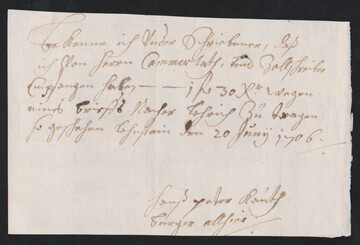 Bekenne ich Under Schriebener, daß
ich von Herrn Cammer Rath, und Zollschreiber
Empfangen habe, — 1 R 30 Kr wegen
eines brieffs Nacher zu tragen
so geschehen den 20 Juny 1706.
Hanß peter Rauth
burger allhier